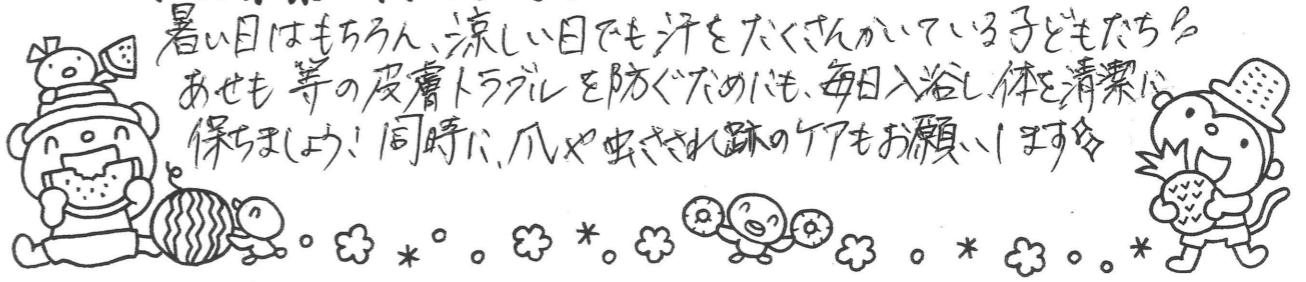 暑い日はもちろん、涼しい日でも汗をたくさんかいている子どもたち
あせも等の皮膚トラブルを防ぐためにも、毎日入浴し、体を清潔に
保ちましょう!同時に、爪や虫さされ跡のケアもお願いします☆